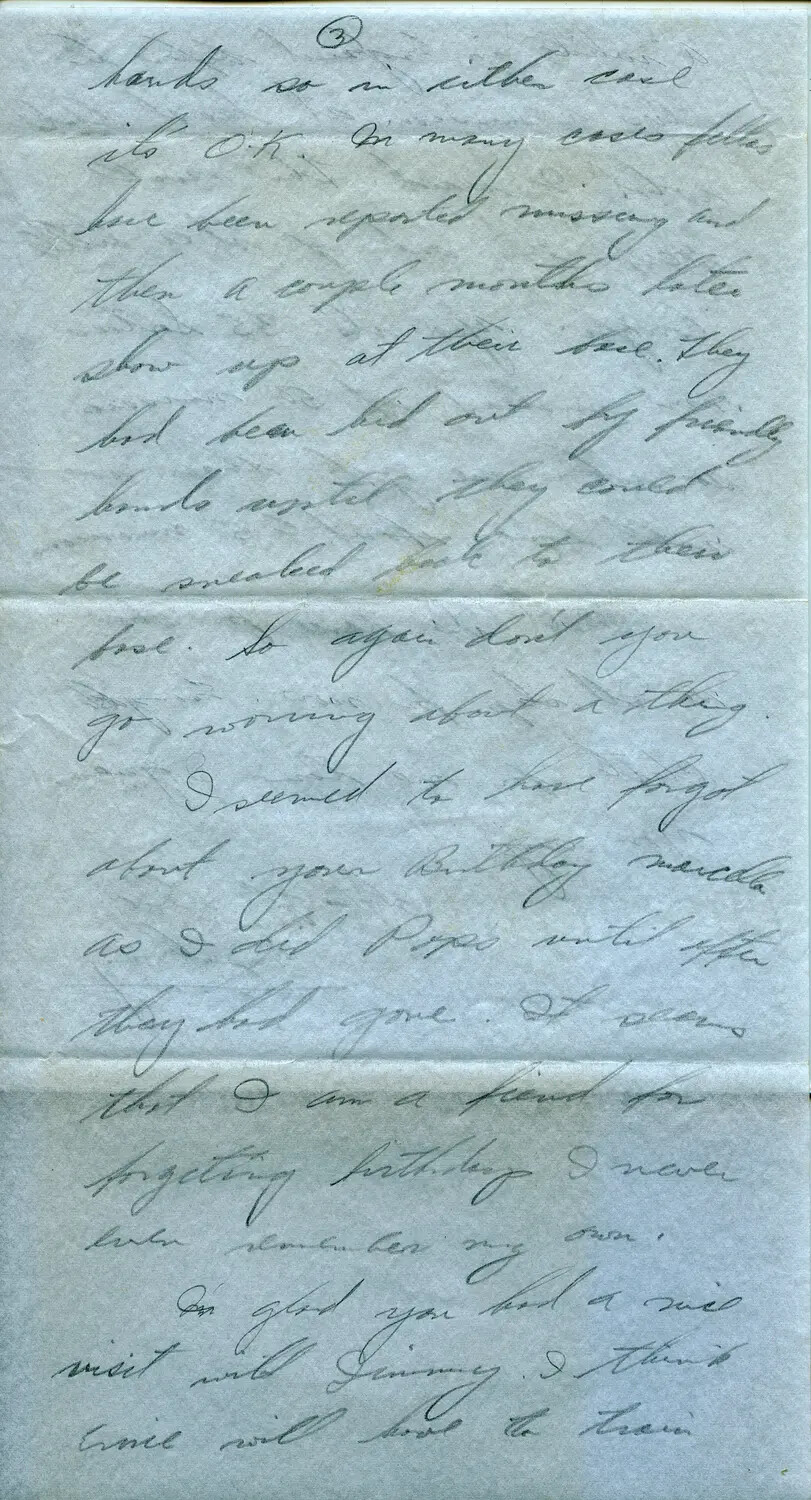 3
hands so in either case
it's O.K. In many cases fellas
have been reported missing and
then a couple months later
show up at their base. They
had been hid out by friendly
hands until they could
be sneaked back to their
base. So again don't you
go worring about a thing.
I seemed to have forgot
about your Birthday Marcella
as I did Pops until after
they had gone. It seems
that I am a fiend for
forgeting birthdays I never
even remember my own.
I'm glad you had a nice
visit with Jimmy. I think
Ernie will have to train